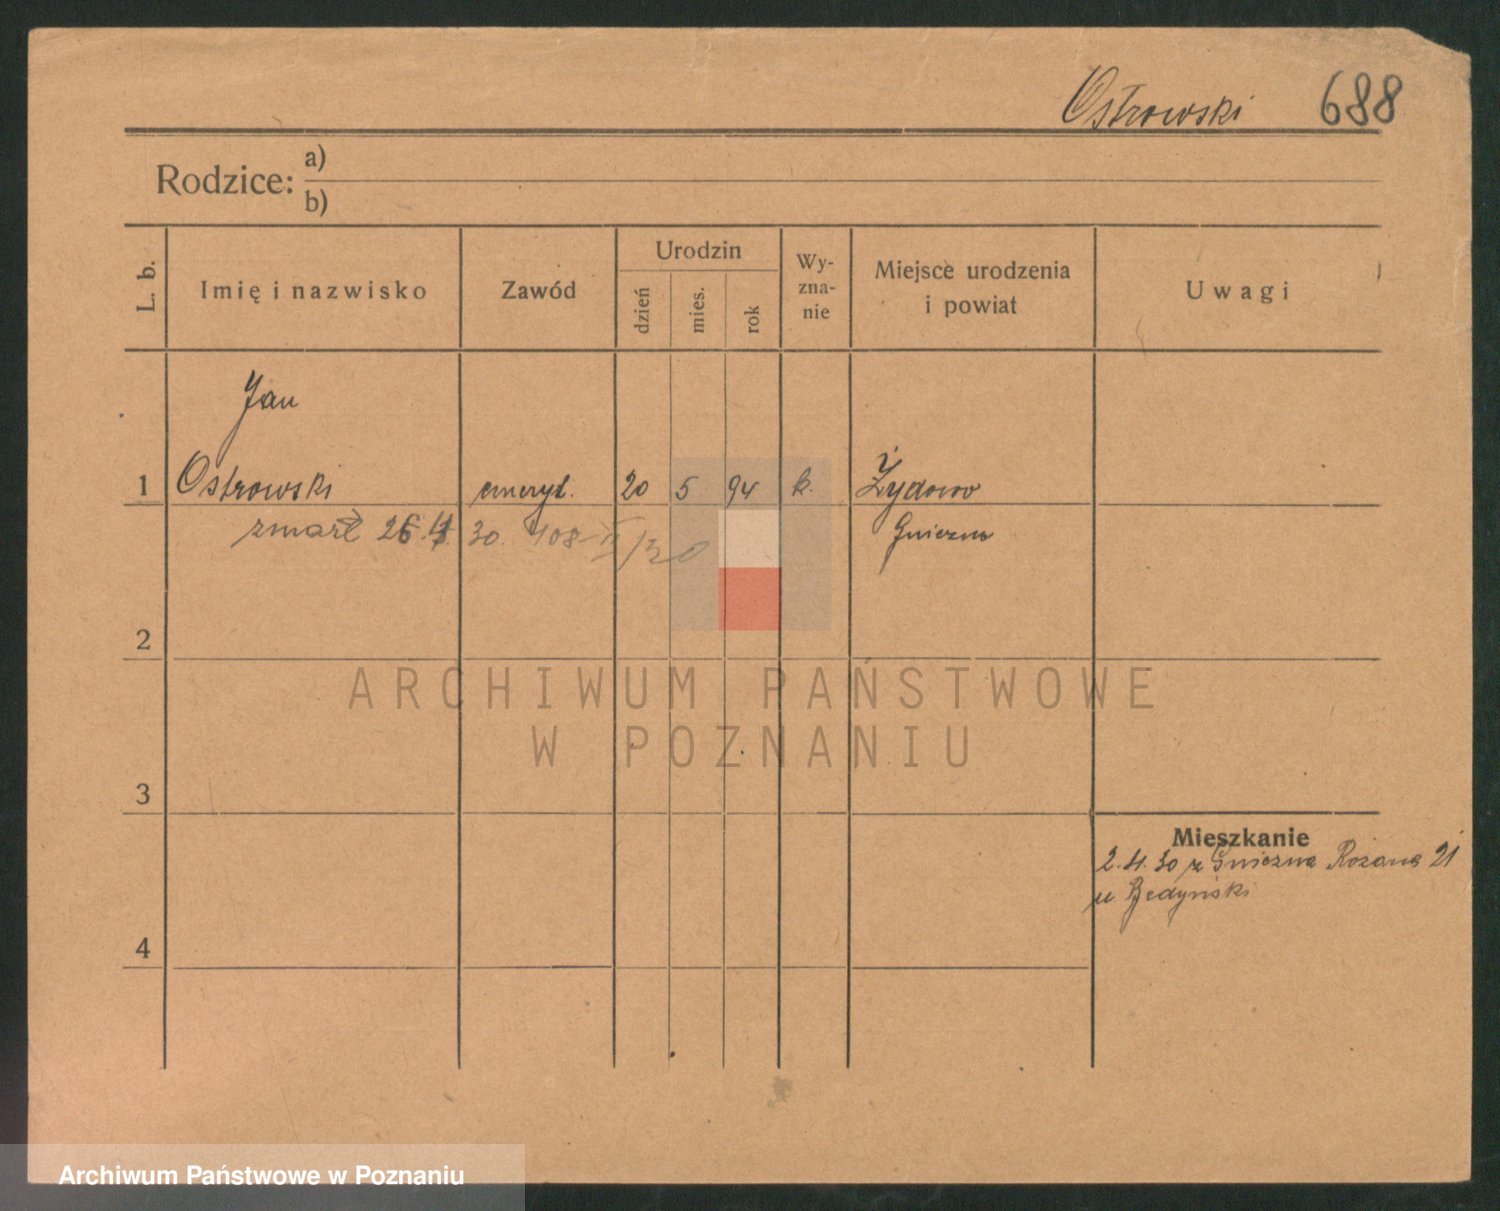 Ostrowski 688
Rodzice: a)
b)
L. b. Imię i nazwisko Zawód Urodzin dzień mies. rok Wy-zna-nie Miejsce urodzenia i powiat Uwagi
Jan
1 Ostrowski emeryt. 20 5 94 k. Żydowo
zmarł 26. 30. 408 /30 Gniezno
2
ARCHIWUM PAŃSTWOWE
W POZNANIU
3
Mieszkanie
2.4.30 z Gniezna Różana 21
u Będyński
4
Archiwum Państwowe w Poznaniu